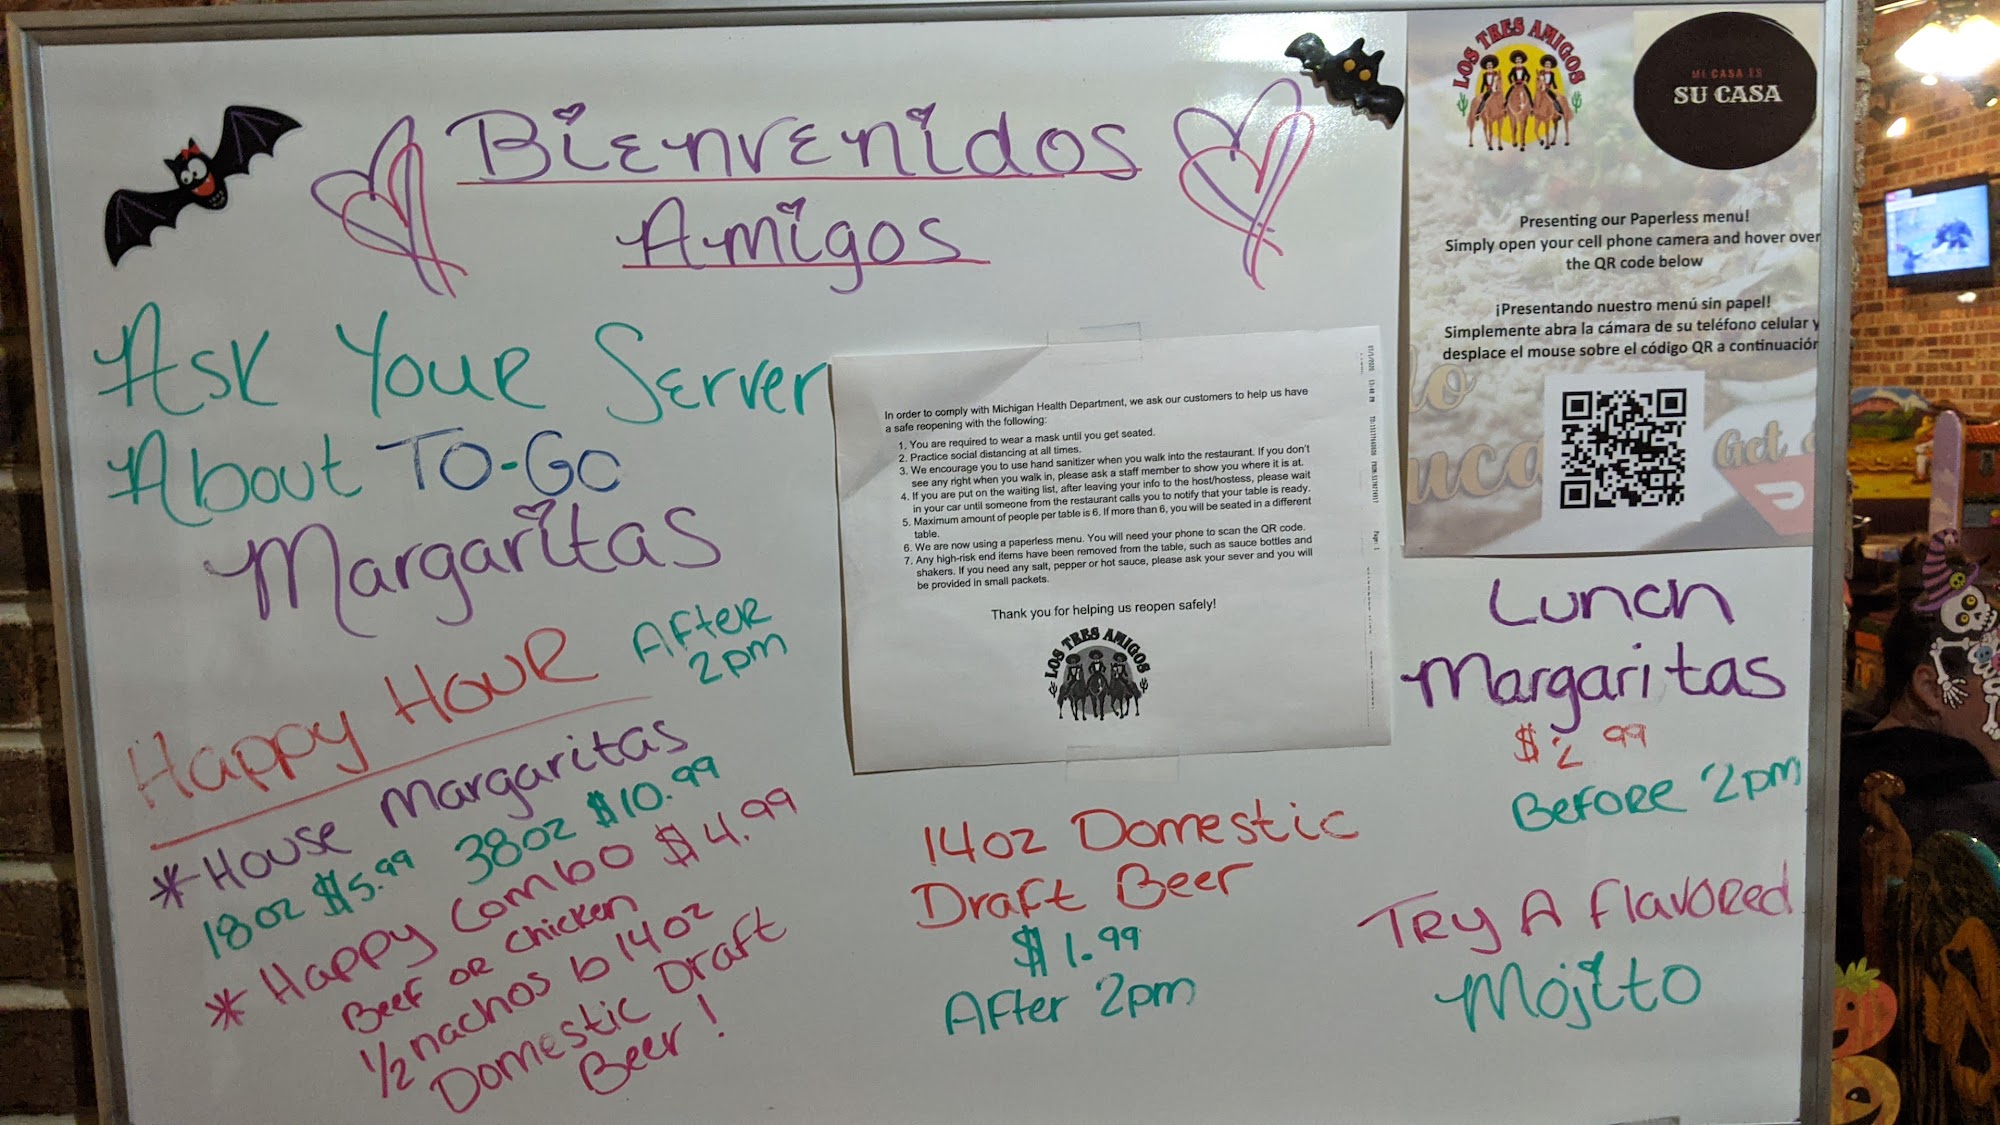 Bienvenidos
Amigos
Ask Your Server
About TO-GO
Margaritas
Happy Hour
After
2pm
* House Margaritas
18oz $5.99 38oz $10.99
* Happy Combo $4.99
Beef or Chicken
1/2 nachos b 14oz
Domestic Draft
Beer!
In order to comply with Michigan Health Department, we ask our customers to help us have
a safe reopening with the following:
1. You are required to wear a mask until you get seated.
2. Practice social distancing at all times.
3. We encourage you to use hand sanitizer when you walk into the restaurant. If you don't
see any right when you walk in, please ask a staff member to show you where it is at.
4. If you are put on the waiting list, after leaving your info to the host/hostess, please wait
in your car until someone from the restaurant calls you to notify that your table is ready.
5. Maximum amount of people per table is 6. If more than 6, you will be seated in a different
table.
6. We are now using a paperless menu. You will need your phone to scan the QR code.
7. Any high-risk end items have been removed from the table, such as sauce bottles and
shakers. If you need any salt, pepper or hot sauce, please ask your sever and you will
be provided in small packets.
Thank you for helping us reopen safely!
LOS TRES AMIGOS
14oz Domestic
Draft Beer
$1.99
After 2pm
LOS TRES AMIGOS
MI CASA ES
SU CASA
Presenting our Paperless menu!
Simply open your cell phone camera and hover over
the QR code below
¡Presentando nuestro menú sin papel!
Simplemente abra la cámara de su teléfono celular y
desplace el mouse sobre el código QR a continuación
Get
Lunch
Margaritas
$2.99
Before 2pm
Try A Flavored
Mojito